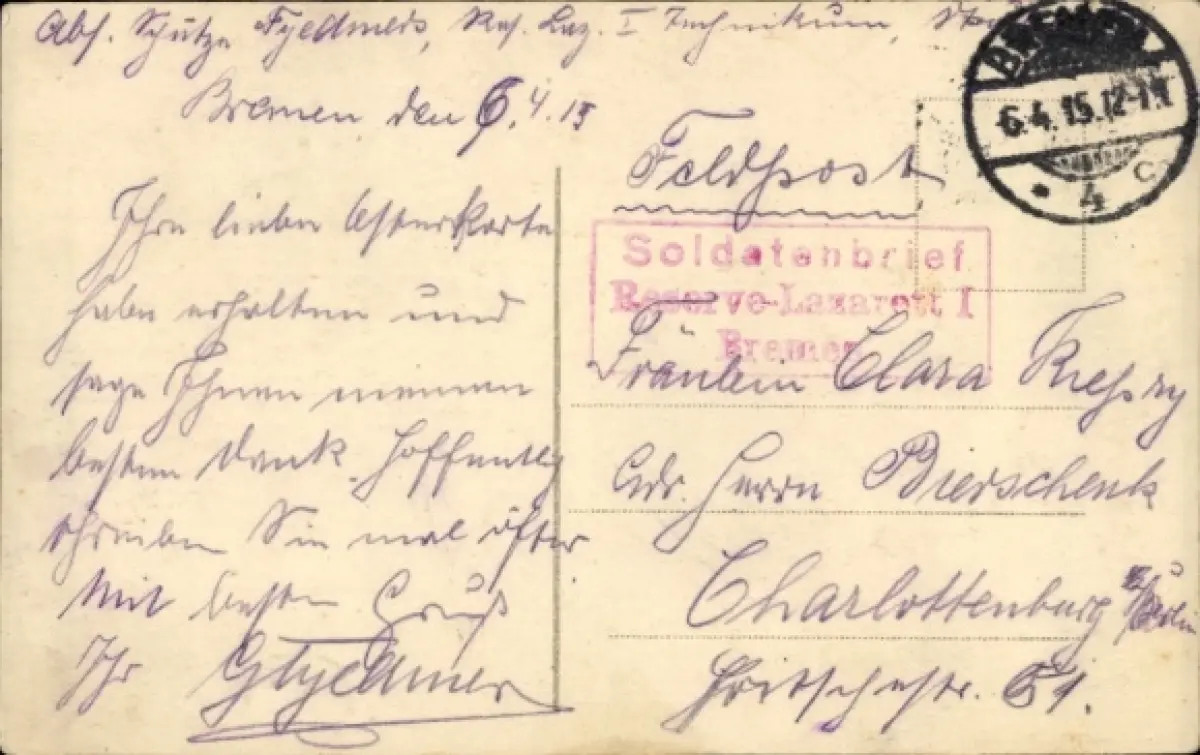 Abs. Schütze Tjedmers, Res. Laz. I Technikum,
Bremen den 6.4.15
BREMEN
6.4.15.12-1N.
* 4 c
Feldpost
Soldatenbrief
Reserve-Lazarett I
Bremen
Ihre liebe Osterkarte
habe erhalten und
sage Ihnen meinen
besten Dank. Hoffentlich
schreiben Sie mal öfter
Mit besten Gruß
Ihr
Fräulein Clara
Adr. Herrn Bierschenk
Charlottenburg b/Berlin
Fritschestr. 61.